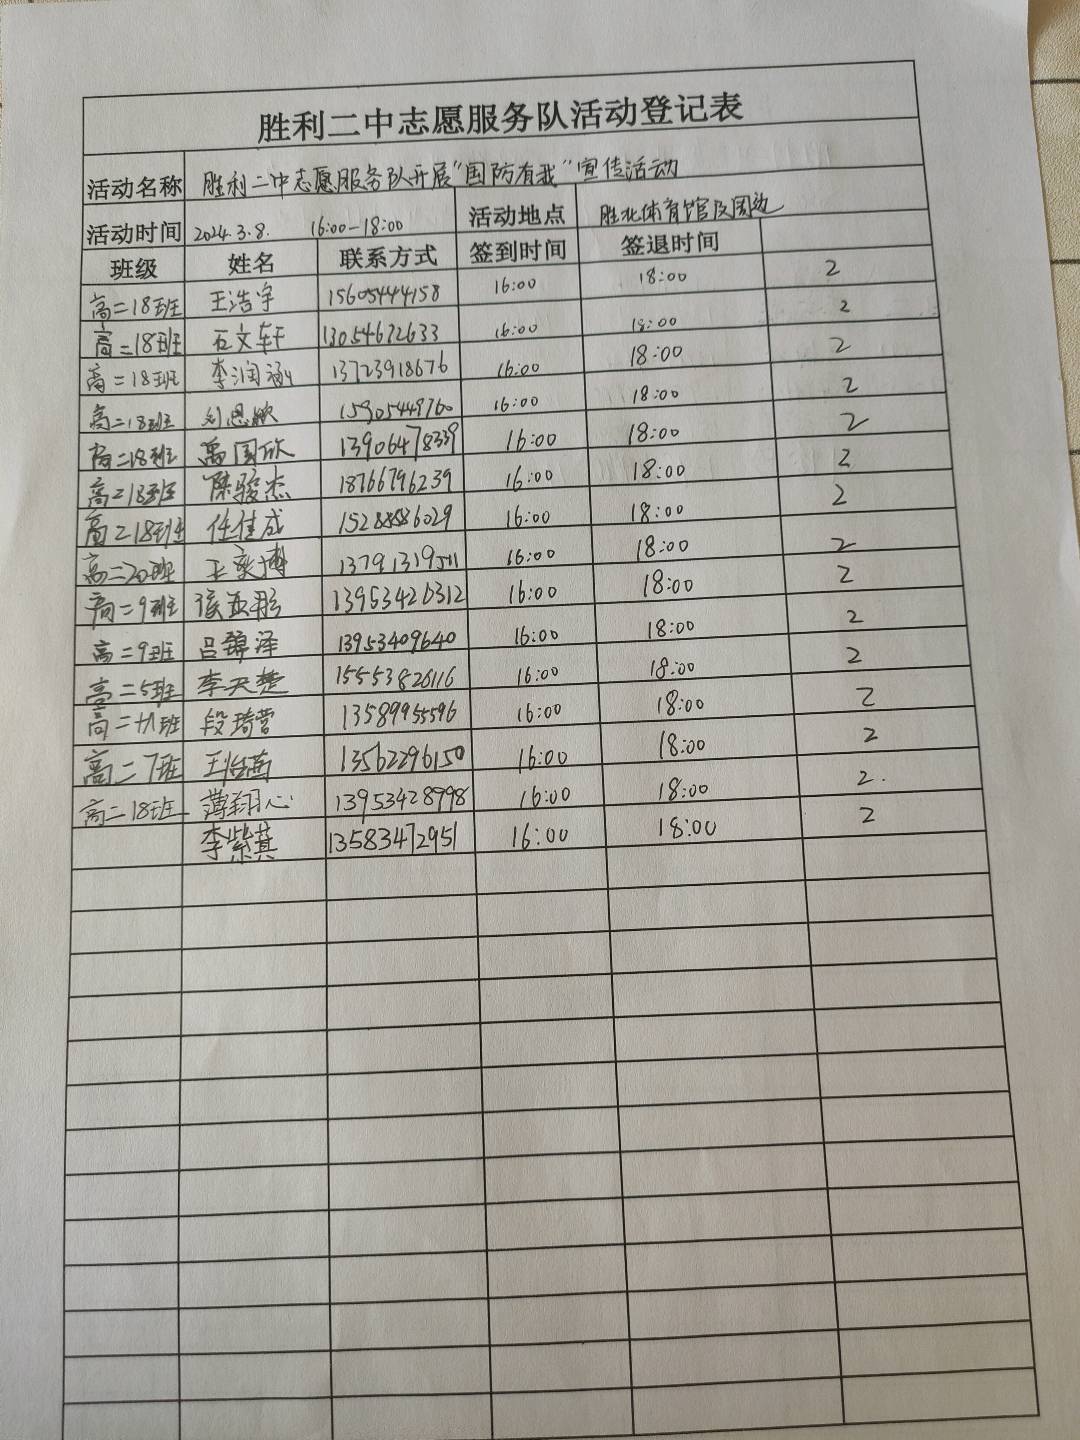 胜利二中志愿服务队活动登记表
活动名称 胜利二中志愿服务队开展"国防有我"宣传活动
活动时间 2024.3.8. 16:00-18:00 活动地点 胜北体育馆及周边
班级 姓名 联系方式 签到时间 签退时间
高二18班 王浩宇 15605444158 16:00 18:00 2
高二18班 石文轩 13054672633 16:00 18:00 2
高二18班 李润涵 13723918676 16:00 18:00 2
高二18班 刘恩欣 15905449760 16:00 18:00 2
高二18班 万国欣 13906478339 16:00 18:00 2
高二18班 陈骏杰 18766796239 16:00 18:00 2
高二18班 任佳成 15288886029 16:00 18:00 2
高二20班 王奕博 13791319511 16:00 18:00 2
高二9班 16:00 18:00 2
高二9班 吕锦泽 13953409640 16:00 18:00 2
高二5班 李天楚 15553826116 16:00 18:00 2
高二十八班 段琦营 13589955596 16:00 18:00 2
高二7班 13562296150 16:00 18:00 2
高二18班 薄翔心 13953428998 16:00 18:00 2.
李紫萁 13583472951 16:00 18:00 2